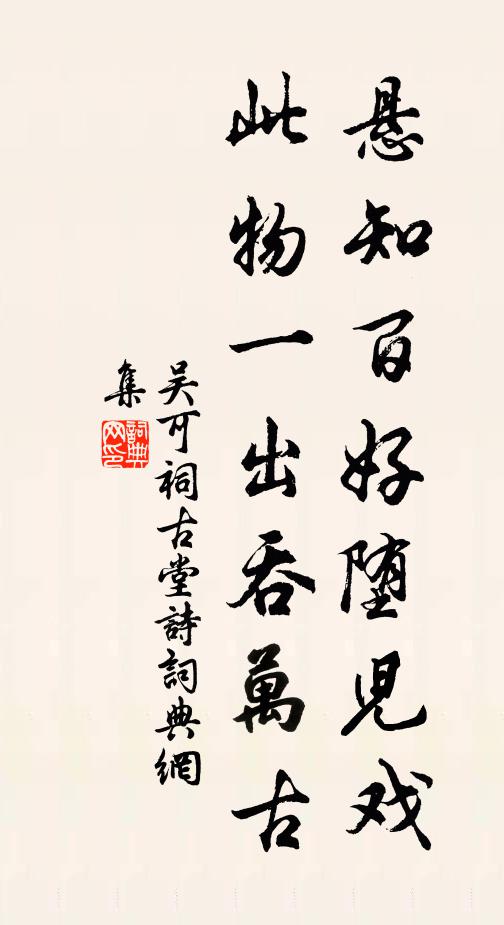 悬知百好堕児戏
此物一出吞萬古
吴可祠古堂詩詞典網
集
詞典网印